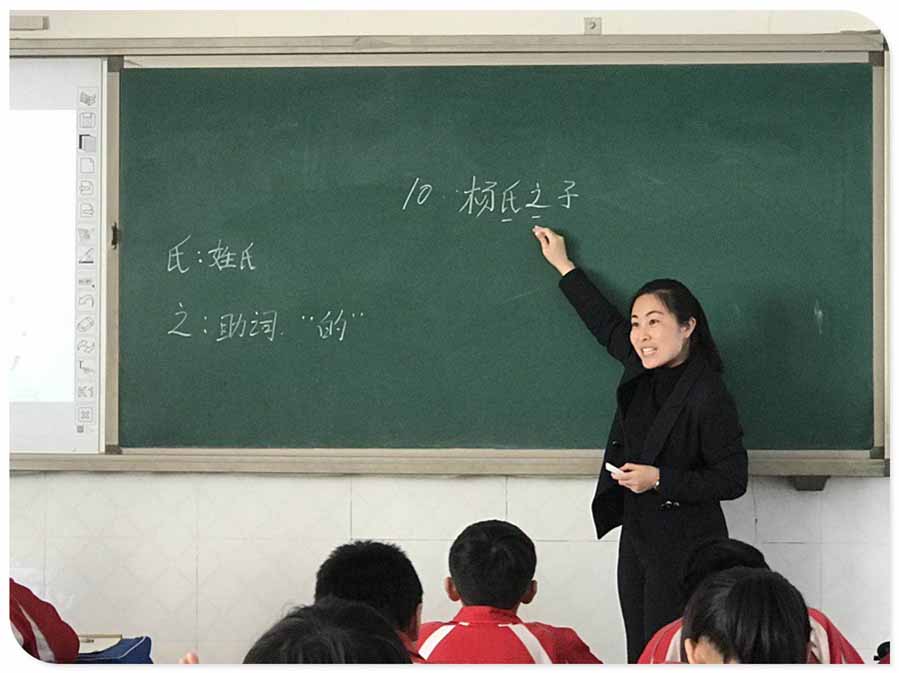 10. 杨氏之子
氏：姓氏
之：助词. "的"
K1